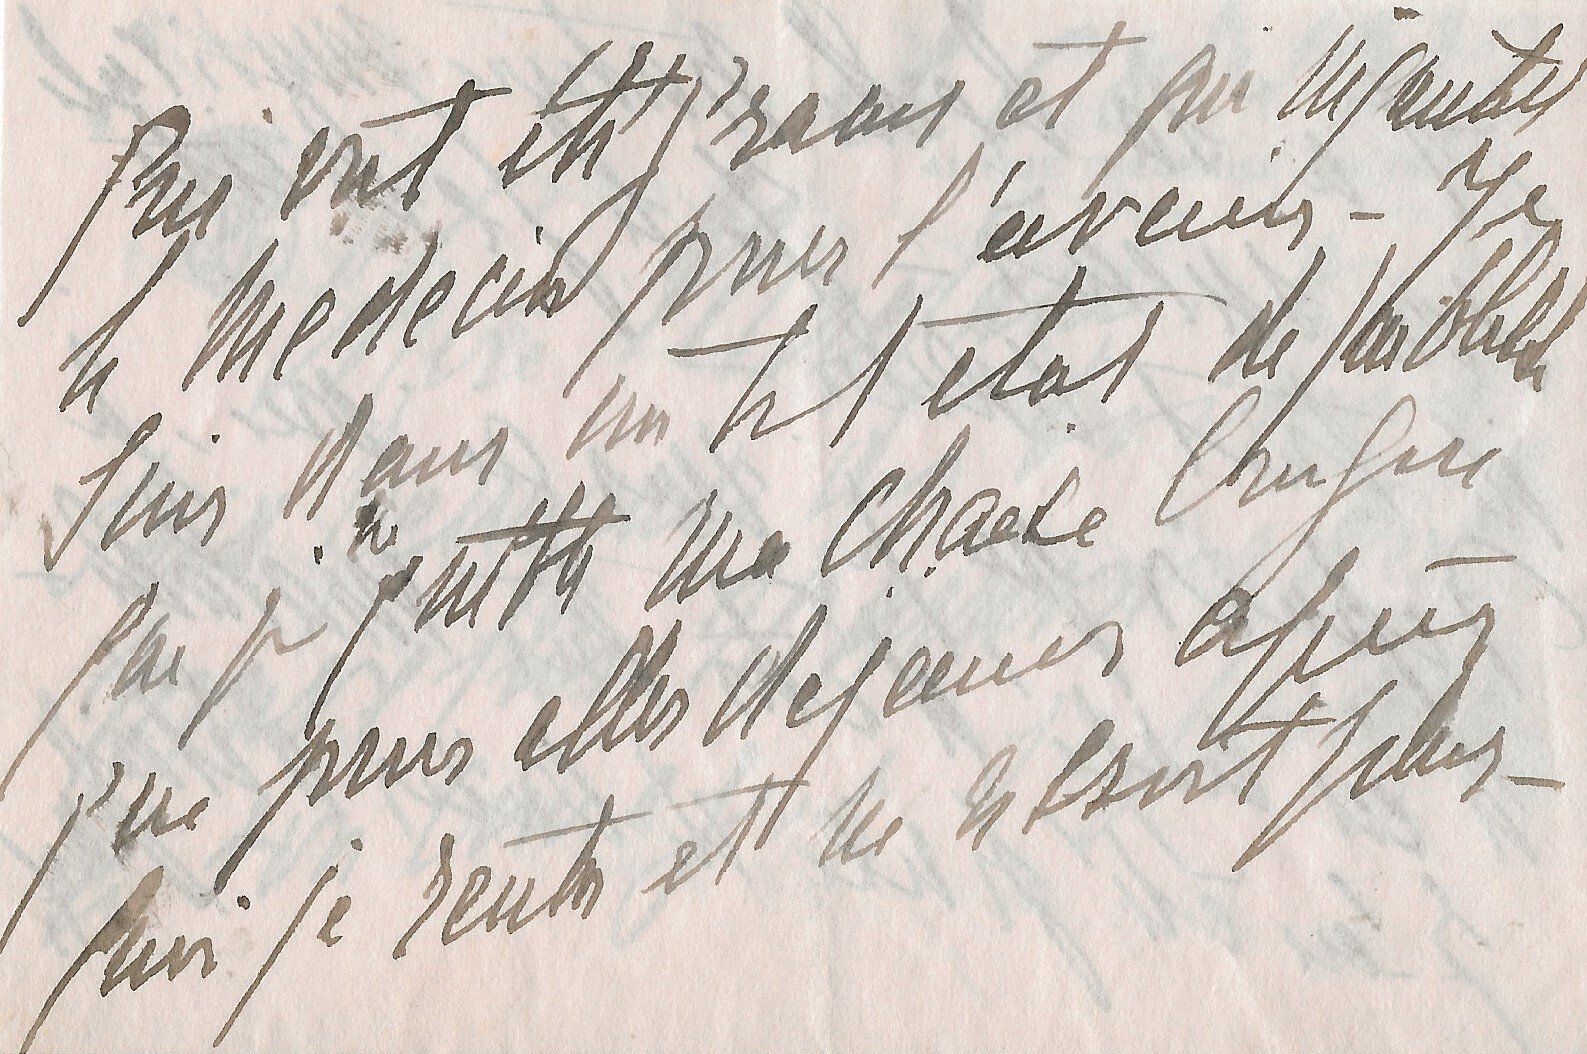 qui ont été graves et qui inquiètent
le medecin pour l'avenir – Je
suis dans un tel etat de faiblesse
que je ne quitte ma chaise longue
que pour aller dejeuner après
quoi je rentre et ne ressort plus –